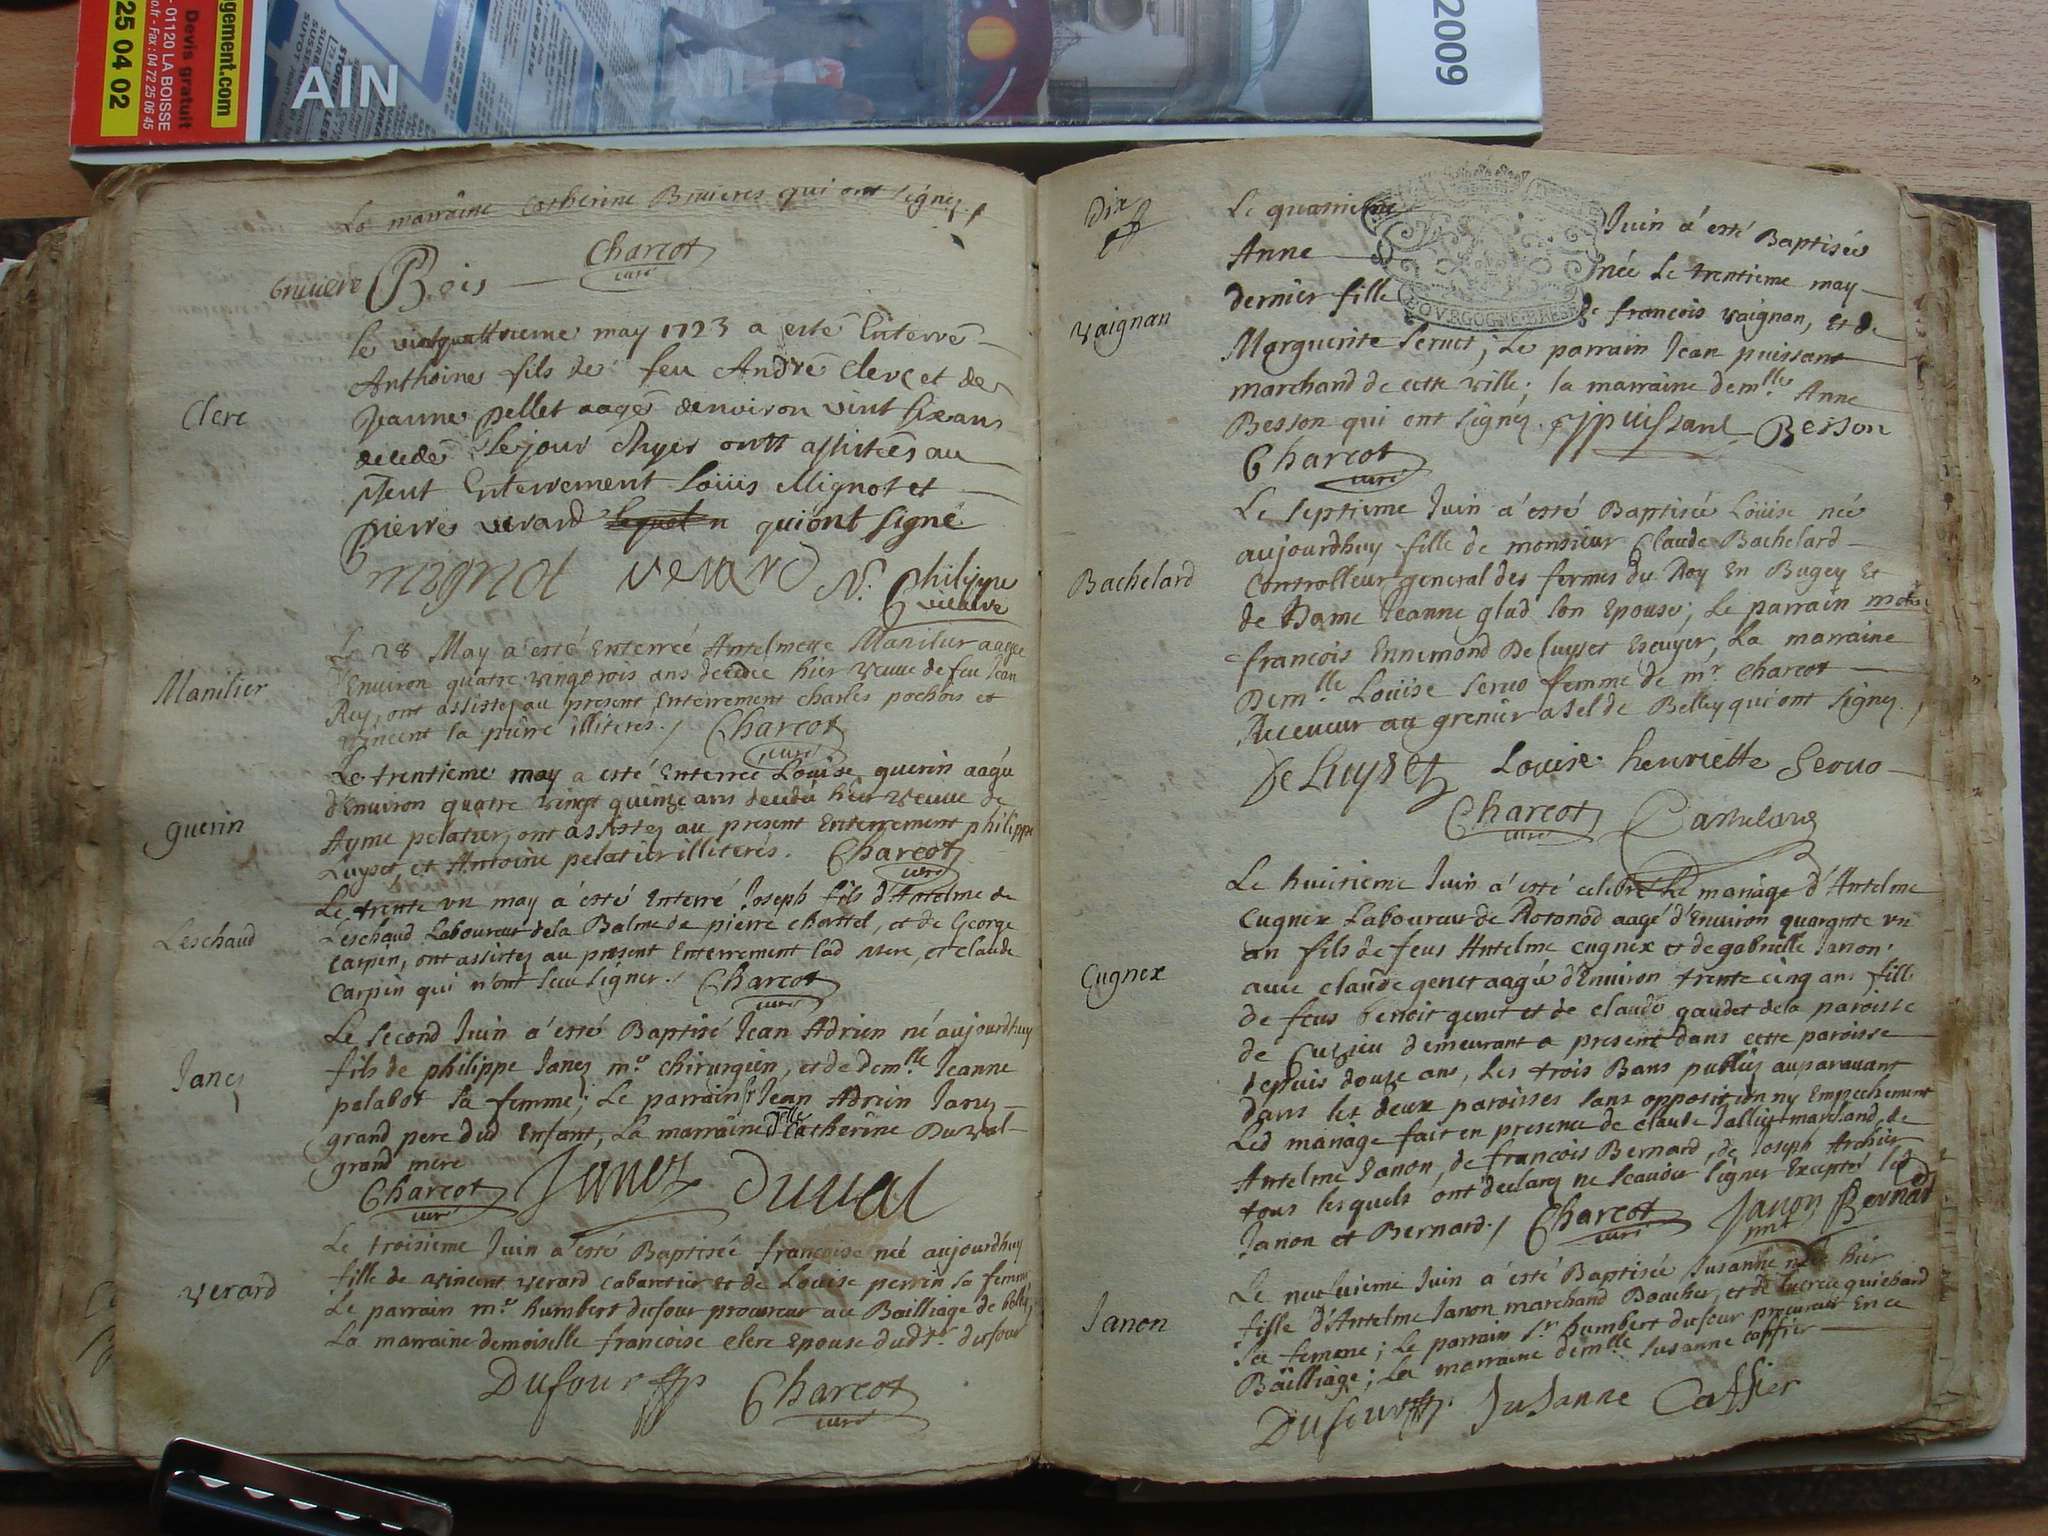 gement.com
Devis gratuit
01120 LA BOISSE
Fax : 04 72 25 06 45
25 04 02
AIN
2009
La marraine Catherine Bruieres qui ont signez
bruiere Bois Charcot
curé
Clerc
le vintquattrieme may 1723 a esté Enterré
Anthoine fils de feu André Clerc et de
Jeanne pellet aagé denviron vint six ans
decedé le jour d'hyer ontt assistés au
pnt Enterrement Loüis Mignot et
pierre verard qui ont signé
mignot verard N. Philippe
vicaire
Manilier
Le 28 May a esté Enterrée Antelmette Manilier aagée
d'Environ quatre vingt trois ans decedée hier veuve de feu Jean
Rey, ont assistez au present Enterrement Charles pochois et
vincent la pierre illiteres. / Charcot
curé
guerin
Le trentieme may a esté Enterrée Loüise guerin aagée
d'Environ quatre vingt quinze ans decedée hier veuve de
Ayme pelatier, ont assistez au present Enterrement philippe
Luyset, et Antoine pelatier illiteres. Charcot
curé
Leschaud
Le trente un may a esté Enterré Joseph fils d'Antelme de
Leschaud Laboureur de la Balme de pierre Chattel, et de George
Carpin, ont assistez au present Enterrement lad mere, et claude
Carpin qui n'ont sceu signer. / Charcot
curé
Janez
Le second Juin a esté Baptisé Jean Adrien né aujourdhuy
fils de philippe Janez mre chirurgien, et de demlle Jeanne
palabot sa femme; Le parrain sr Jean Adrien Janez
grand pere dud Enfant, La marraine dlle Catherine Duval
grand mere
Charcot Janez Duval
curé
verard
Le troisieme Juin a esté Baptisée francoise née aujourdhuy
fille de vincent verard cabartier et de Louise perrin sa femme
Le parrain mre humbert dufour procureur au Bailliage de belley
La marraine demoiselle francoise clerc Epouse dudt dufour
Dufour Charcot
curé
Dix
Le quatrieme Juin a esté Baptisée
Anne née Le trentieme may
dernier fille de francois vaignan, et de
BOVRGOGNE BRESSE
vaignan
Marguerite seruet; Le parrain Jean puissant
marchand de cette ville; la marraine demlle Anne
Besson qui ont signéz. Jpuissant Besson
Charcot
curé
Bachelard
Le septieme Juin a esté Baptisée Loüise née
aujourdhuy fille de monsieur Claude Bachelard
Controlleur general des fermes du Roy En Bugey et
de Dame Jeanne glad son Epouse; Le parrain
francois Ennemond De Luyset Escuyer, La marraine
Demlle Loüise seruo femme de mr Charcot
Receveur au grenier a sel de Belley qui ont signez. /
De Luyset Louise henriette Seruo
Charcot Bachelard
curé
Cugnex
Le huitieme Juin a esté celebré Le mariage d'Antelme
Cugnex Laboureur de Rotonod aagé d'Environ quarante un
an fils de feus Antelme cugnex et de gabrielle Janon,
avec claude genet aagée d'Environ trente cinq ans fille
de feus benoit genet et de claude gaudet de la paroisse
de Cuzieu demeurant a present dans cette paroisse
depuis douze ans, Les trois Bans publiez auparavant
dans les deux paroisses sans opposition ny Empechement
Led mariage fait en presence de claude Jallier marchand, de
Antelme Janon, de francois Bernard, de Joseph
tous lesquels ont declaré ne scavoir signer Excepté led
Janon et Bernard. / Charcot Janon Bernard
curé
Janon
Le neuvieme Juin a esté Baptisée Susanne née hier
fille d'Antelme Janon marchand Boucher, et de Lucrece quichard
sa femme; Le parrain sr humbert dufour procureur En ce
Bailliage; La marraine demlle Susanne Caffier
Dufour Susanne Caffier